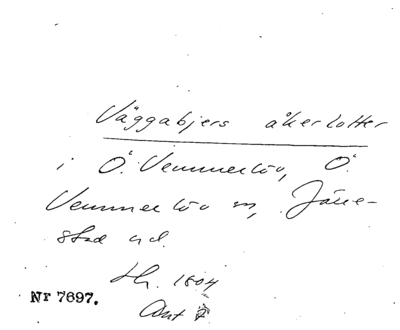 Väggabjers åkerlotter
i Ö. Vemmerlöv, Ö.
Vemmerlöv sn, Järre-
stad hd.
Hr. 1804
Nr 7697.
Ant